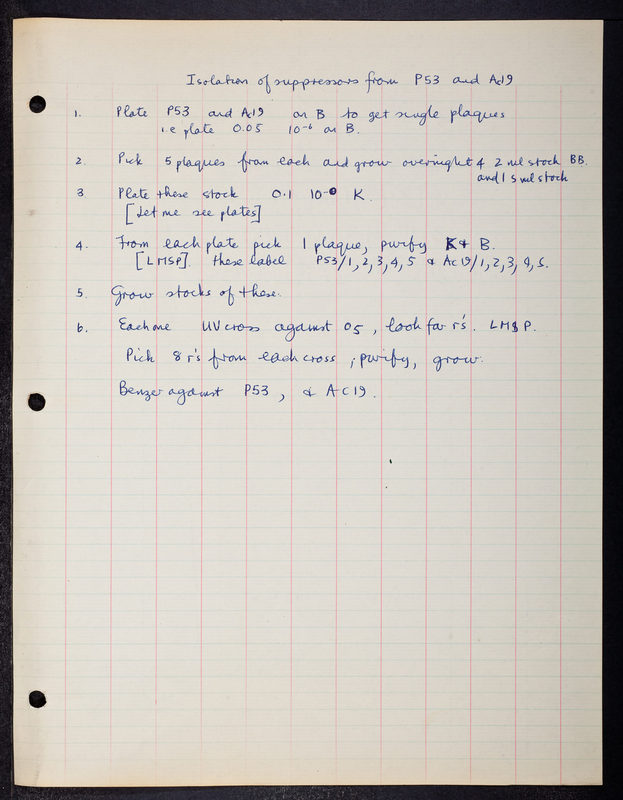 Isolation of suppressors from P53 and Ac19
1. Plate P53 and Ac19 on B to get single plaques
i.e plate 0.05 10⁻⁶ on B.
2. Pick 5 plaques from each and grow overnight 4 2 ml stock BB.
and 1 5 ml stock
3 Plate these stock 0.1 10⁻⁰ K.
[Let me see plates]
4. From each plate pick 1 plaque, purify & B.
[LMSP]. these label P53/1,2,3,4,5 & Ac19/1,2,3,4,5.
5. Grow stocks of these.
6. Each one UV cross against 05, look for r's. LMSP.
Pick 8 r's from each cross, purify, grow.
Benzer against P53, & AC19.